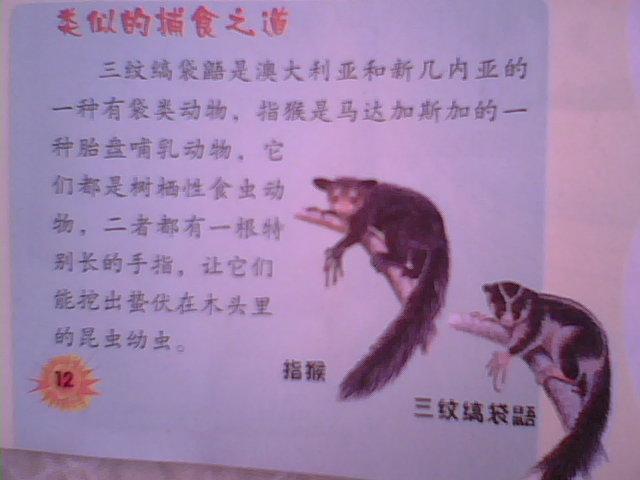 类似的捕食之道
三纹缟袋鼯是澳大利亚和新几内亚的
一种有袋类动物，指猴是马达加斯加的一
种胎盘哺乳动物，它
们都是树栖性食虫动
物，二者都有一根特
别长的手指，让它们
能挖出蛰伏在木头里
的昆虫幼虫。
指猴
三纹缟袋鼯
12